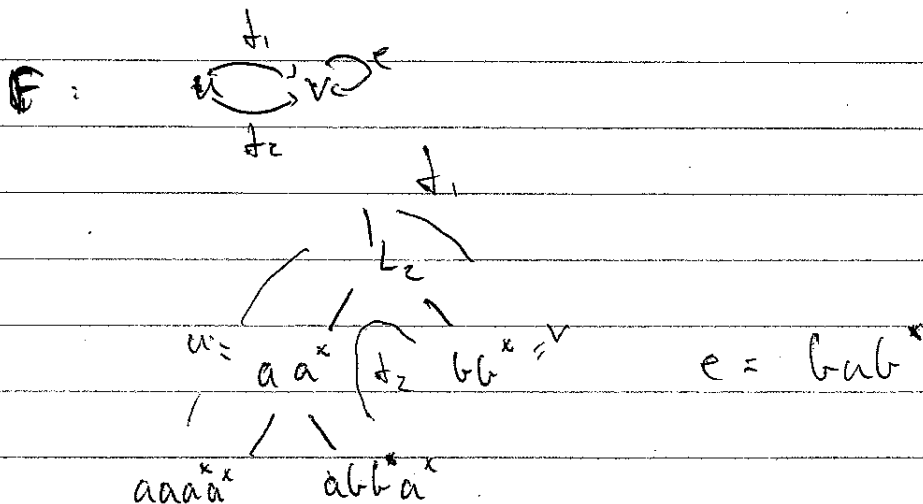 f₁
F : u v e
f₂
f₁
L₂
u = a a* f₂ bb* = v e = bab*
aaaa*a* abb*a*